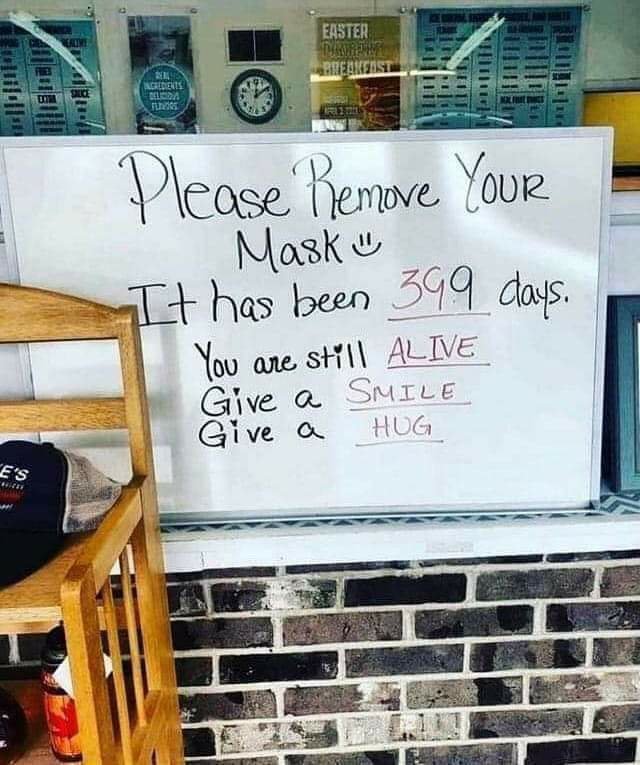 EASTER
BREAKFAST
REAL
INGREDIENTS
DELICIOUS
FLAVORS
Please Remove Your
Mask
It has been 399 days.
You are still ALIVE
Give a SMILE
Give a HUG
E'S